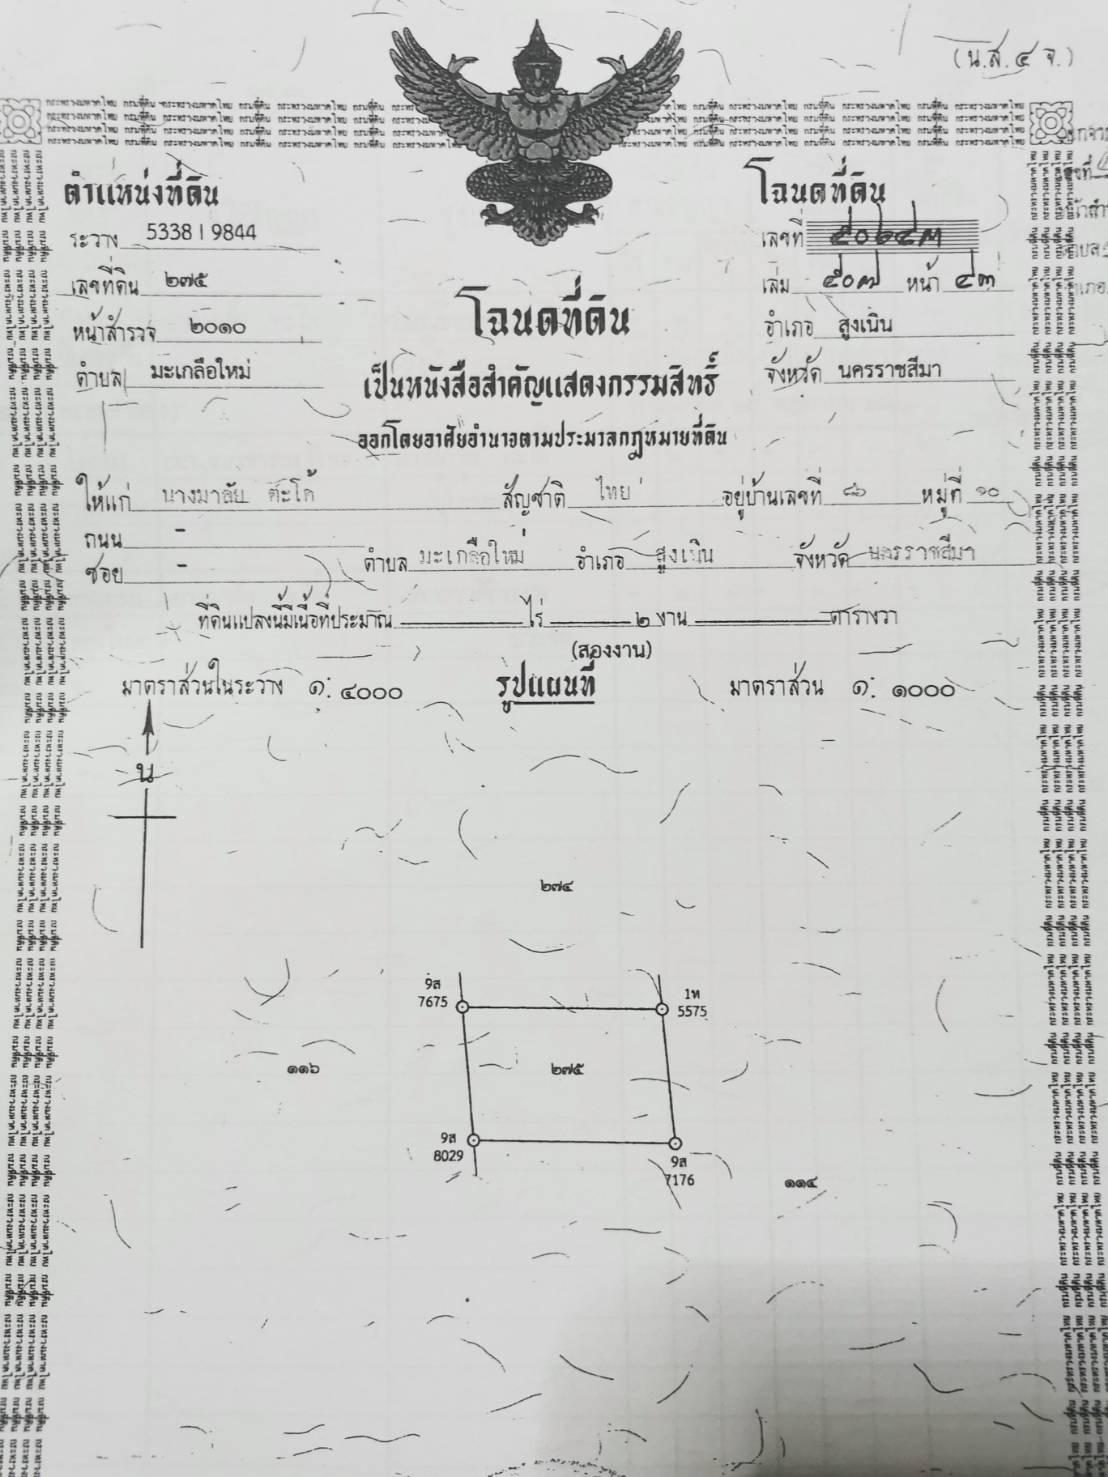 (น.ส. ๔ จ.)
ตำแหน่งที่ดิน
ระวาง 5338 I 9844
เลขที่ดิน ๒๗๕
หน้าสำรวจ ๒๐๑๐
ตำบล มะเกลือใหม่
โฉนดที่ดิน
เลขที่ ๕๐๖๔๓
เล่ม ๕๐๗ หน้า ๔๓
อำเภอ สูงเนิน
จังหวัด นครราชสีมา
โฉนดที่ดิน
เป็นหนังสือสำคัญแสดงกรรมสิทธิ์
ออกโดยอาศัยอำนาจตามประมวลกฎหมายที่ดิน
ให้แก่ นางมาลัย ตะโก้ สัญชาติ ไทย อยู่บ้านเลขที่ ๘๖ หมู่ที่ ๑๐
ถนน -
ซอย - ตำบล มะเกลือใหม่ อำเภอ สูงเนิน จังหวัด นครราชสีมา
ที่ดินแปลงนี้มีเนื้อที่ประมาณ ไร่ ๒ งาน ตารางวา
(สองงาน)
มาตราส่วนในระวาง ๑: ๔๐๐๐ รูปแผนที่ มาตราส่วน ๑: ๑๐๐๐
น
๒๗๔
9ส
7675
1ห
5575
๑๑๖
๒๗๕
9ส
8029
9ส
7176
๑๑๔